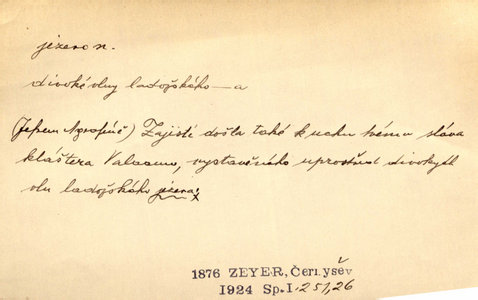 jezero n.
divoké vlny ladožského –a
(Jefem Agrafině) Zajisté došla také k uchu tvému sláva
kláštera Valaamu, vystavěného uprostřed divokých
vln ladožského jezera;
1876 ZEYER, Čern. yšev
1924 Sp.I. 251,26